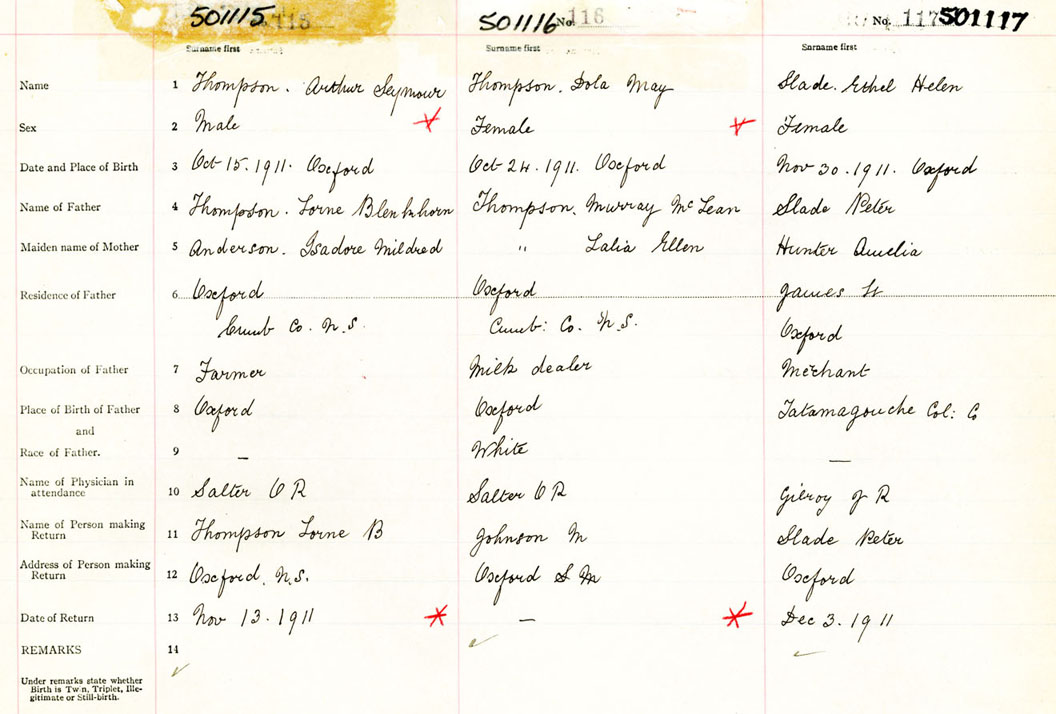 501115 115 501116 No. 116 No. 117 501117
Surname first Surname first Surname first
Name 1 Thompson. Arthur Seymour Thompson. Dola May Slade. Ethel Helen
Sex 2 Male Female Female
Date and Place of Birth 3 Oct 15. 1911. Oxford Oct 24. 1911. Oxford Nov 30. 1911. Oxford
Name of Father 4 Thompson. Lorne Blenkhorn Thompson. Murray McLean Slade Peter
Maiden name of Mother 5 Anderson. Isadore Mildred " Lalia Ellen Hunter Amelia
Residence of Father 6 Oxford Oxford James St
Cumb Co. N.S. Cumb: Co. N.S. Oxford
Occupation of Father 7 Farmer Milk dealer Merchant
Place of Birth of Father 8 Oxford Oxford Tatamagouche Col: Co
and
Race of Father. 9 — White —
Name of Physician in
attendance 10 Salter Salter Gilroy J R
Name of Person making
Return 11 Thompson Lorne B Johnson M Slade Peter
Address of Person making
Return 12 Oxford. N.S. Oxford Oxford
Date of Return 13 Nov 13. 1911 — Dec 3. 1911
REMARKS 14
Under remarks state whether
Birth is Twin, Triplet, Ille-
gitimate or Still-birth.